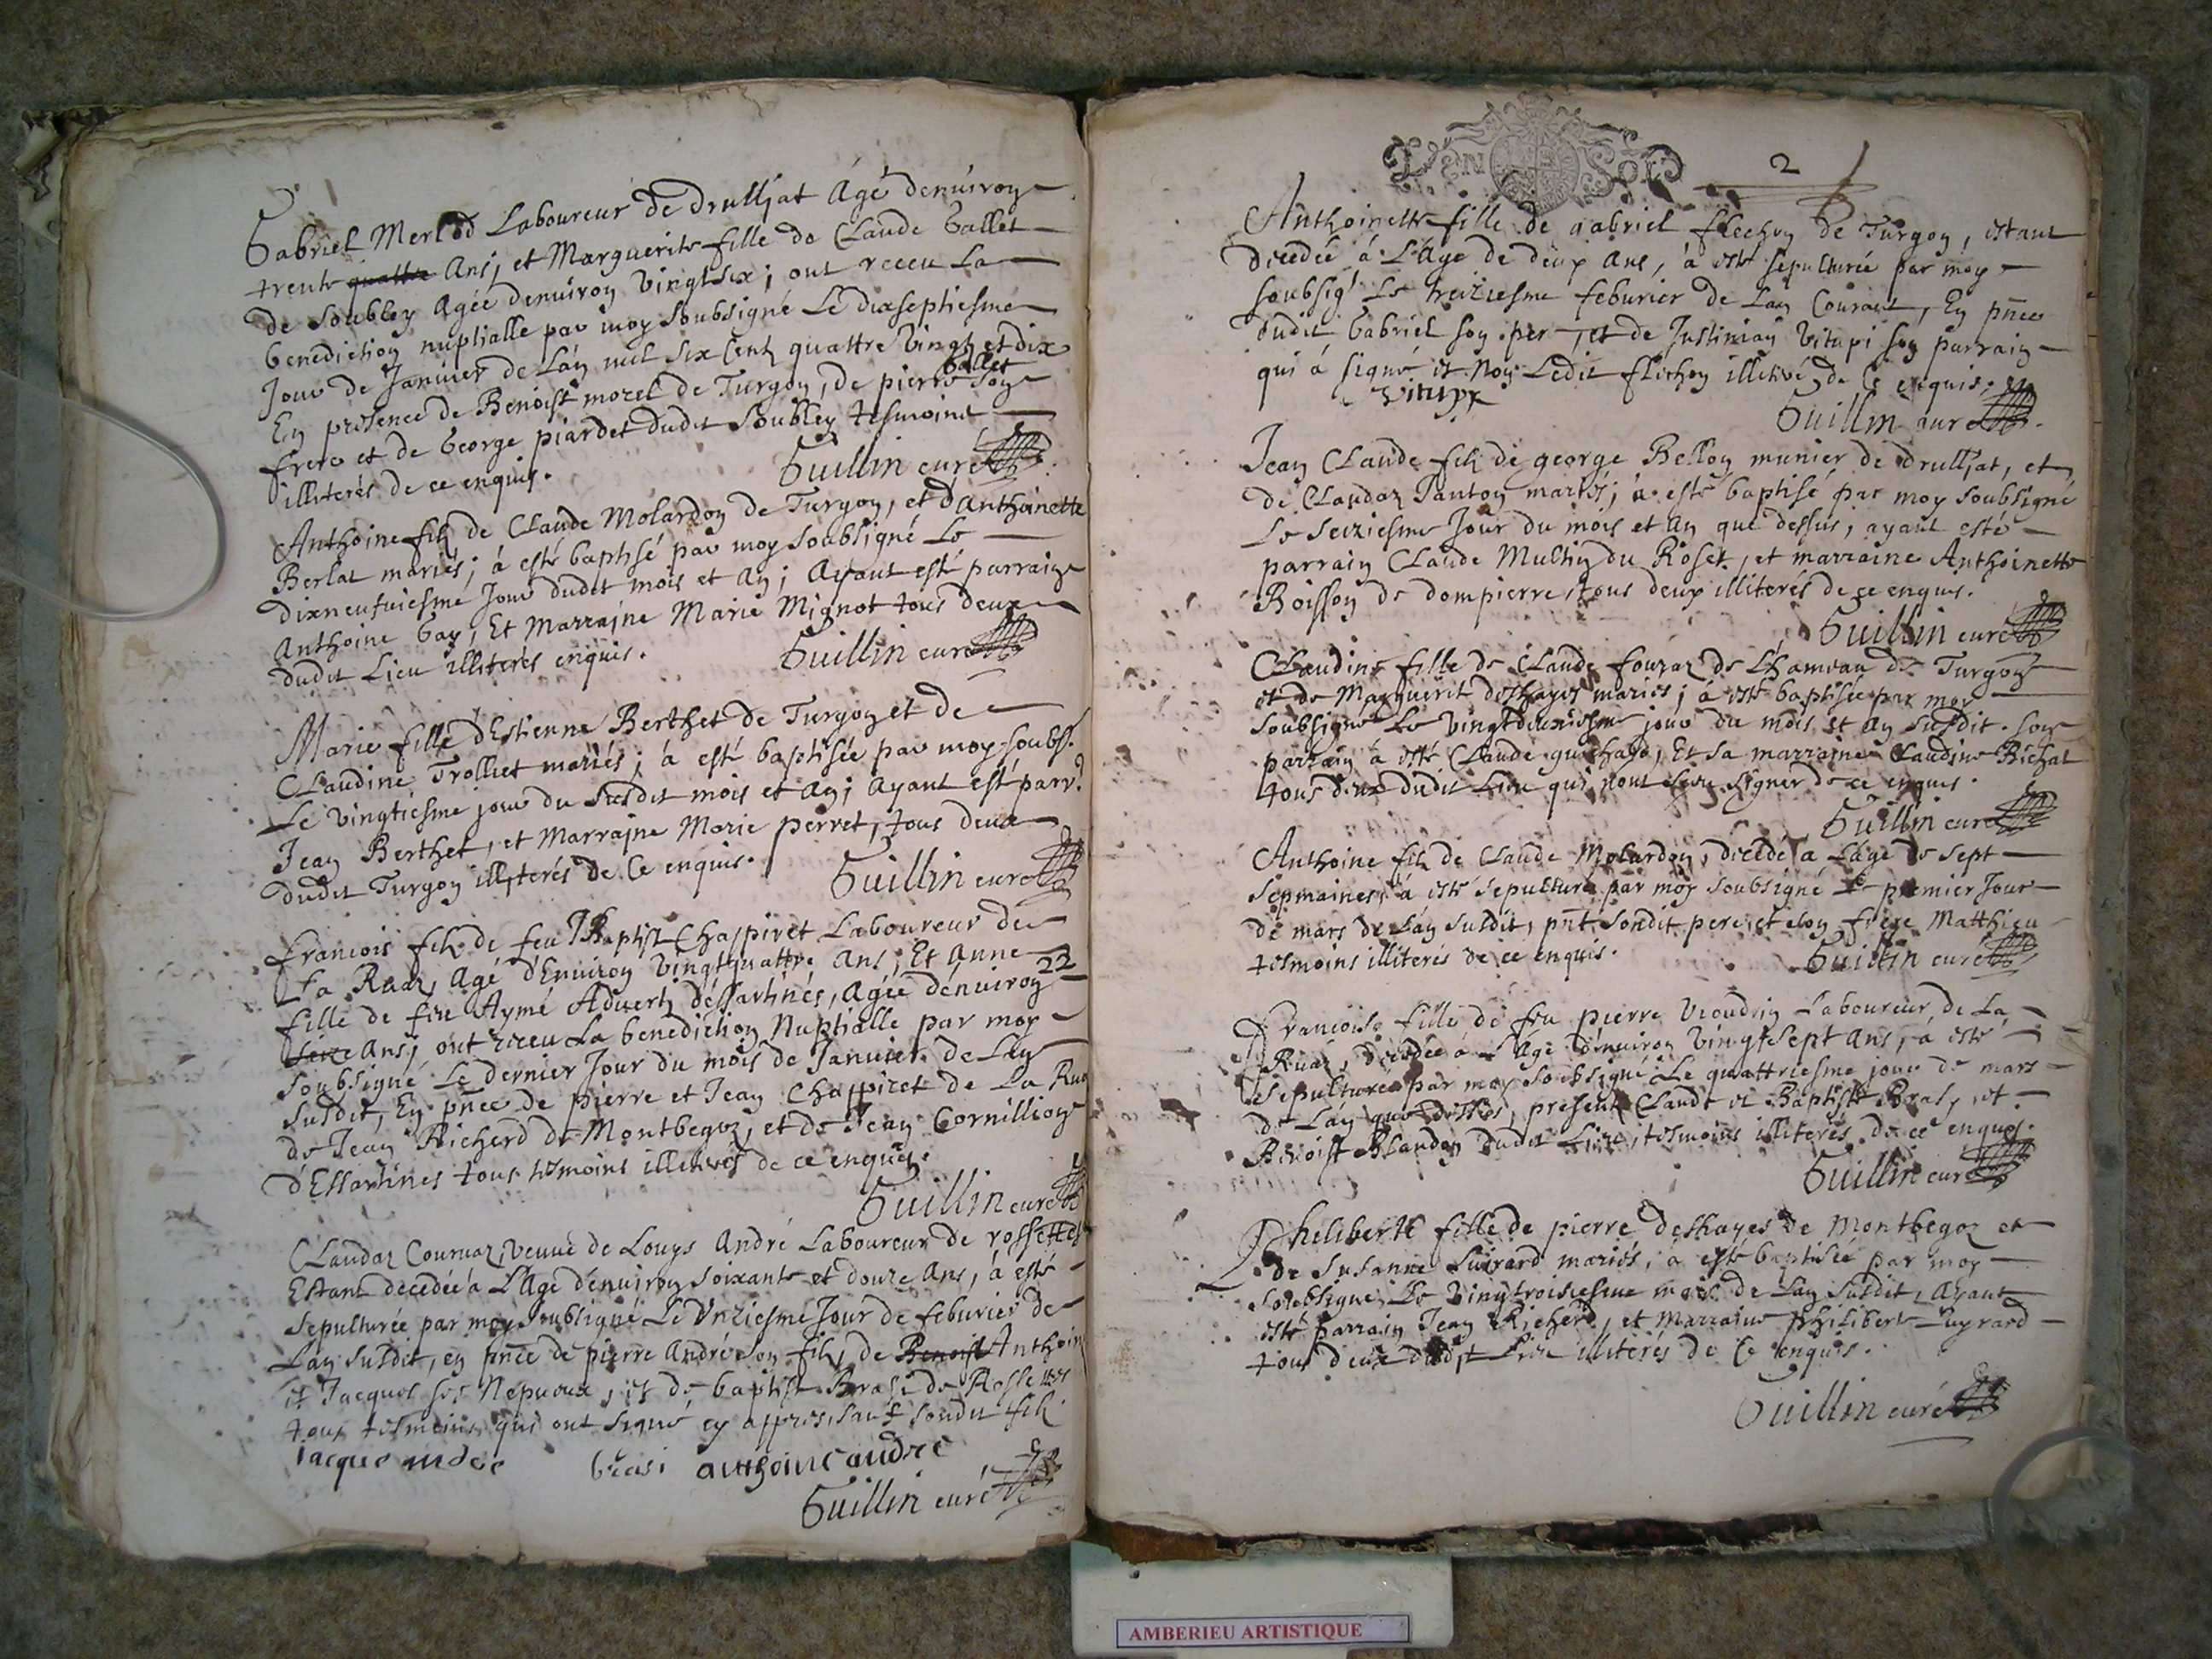 Gabriel Merlod Laboureur de drulljat Agé denuiron
trente quattre Ans; et Marguerite fille de Claude Gallet
de Soubley Agée denuiron vingt six; ont receu La
benediction nuptialle par moy soubsigné Le dixseptiesme
Jour de Janvier de Lan mil six Cent quattre vingts et dix
En presence de Benoist morel de Turgon, de pierre Gallet son
frere et de George piardet dudit Soubley tesmoins
illiterés de ce enquis.
Guillin curé
Anthoine filz de Claude Molardon de Turgon, et d'Anthoinette
Berlat mariés; à esté baptisé par moy soubsigné Le
dixneufuiesme Jour dudit mois et An; Ayant esté parrain
Anthoine Gay, Et Marraine Marie Mignot tous deux
dudit Lieu illiterés enquis.
Guillin curé
Marie fille d'Estienne Berthet de Turgon et de
Claudine Trolliet mariés; à esté baptisée par moy soubs.
Le vingtiesme jour du susdit mois et An; Ayant esté parr.
Jean Berthet, et Marraine Marie perret, tous deux
dudit Turgon illiterés de Ce enquis.
Guillin curé
francois filz de feu JBaptist Chappiret Laboureur de
La Ruaz, Agé d'Enuiron vingtquattre Ans; Et Anne
fille de feu Aymé Aduertz dessartines, Agée denuiron 22
seize ans; ont receu La benediction Nuptialle par moy
soubsigné Le dernier Jour du mois de Januier de Lan
susdit, En pnce de pierre et Jean Chappiret de La Rua
de Jean Richerd de Montbegoz, et de Jean Cornillion
d'Essartines tous tesmoins illiterés de ce enquis.
Guillin curé
Claudaz Couruaz, veuue de Louys André Laboureur de rossettes
Estant decedée a L'Age denuiron soixante et douze Ans, à esté
sepulturée par moy soubsigné Le Vnziesme Jour de feburier de
Lan susdit, en pnce de pierre André son filz, de Benoist Anthoin
et Jacques ses Nepueux, et de baptiste Brasi de Rossettes
tous tesmoins qui ont signé cy appres, sauf sondit filz
Jacque andre brasi anthoine andre
Guillin curé
DEN SOL
2
Anthoinette fille de gabriel flechon de Turgon, estant
decedée à L'Age de deux ans, à esté sepulturée par moy
soubsig.é Le treiziesme feburier de Lan Courant, En pnce
dudit Gabriel son pere, et de Justinian Vitapi son parrain
qui à signé et Non Ledit flechon illiteré de Ce enquis.
Guillin curé
Jean Claude filz de george Bellon munier de drulljat, et
de Claudaz Janton mariés; à esté baptisé par moy soubsigné
Le seiziesme Jour du mois et An que dessus, ayant esté
parrain Claude Multin du Roset, et marraine Anthoinette
Boisson de dompierre, tous deux illiterés de ce enquis.
Guillin curé
Claudine fille de Claude fouraz de Lhameau de Turgon
et de Marguerit deshayes mariés; à esté baptisée par moy
soubsigné Le vingtdeuxiesme jour du mois et an susdit. son
parrain à esté Claude guichard, Et sa marraine Claudine Richat
tous deux dudit Lieu qui nont sceu signer de ce enquis.
Guillin curé
Anthoine filz de Claude Molardon, decedé a Lage de sept
sepmaines, à esté sepulturé par moy soubsigné Le premier Jour
de mars de Lan susdit, pnt sondit pere, et son frere Matthieu
tesmoins illiterés de ce enquis.
Guillin curé
francoise fille de feu pierre Vioudrin Laboureur de La
Ruaz, decedée à L'Age denuiron vingtsept ans, à esté
sepulturée par moy soubsigné Le quattriesme jour de mars
de Lan que dessus, present Claude et Baptiste Brasy, et
Benoist Blandon dudit Lieu, tesmoins illiterés de ce enquis.
Guillin curé
Pheliberte fille de pierre deshayes de Montbegoz et
de Susanne Luirard mariés, à esté baptisée par moy
soubsigné, Le vingtroisiesme mars de Lan susdit, Ayant
esté parrain Jean Richerd, et Marraine philiberte Luyrard
tous deux dudit Lieu illiterés de Ce enquis.
Guillin curé
AMBERIEU ARTISTIQUE